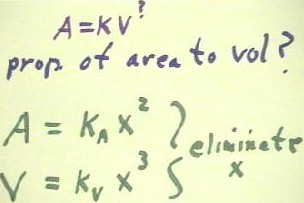 A = KV^?
prop. of area to vol?
A = K_A x^2 } eliminate
V = K_V x^3 } x